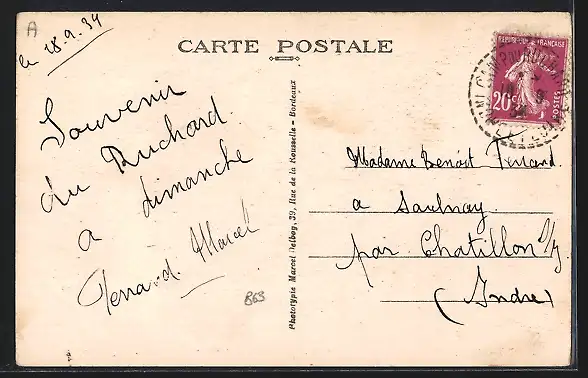 A
le 18.9.34
CARTE POSTALE
Souvenir
du Ruchard
a dimanche
Ferrand Marcel
863
Phototypie Marcel Delboy, 39, Rue de la Rousselle - Bordeaux
REPUBLIQUE FRANÇAISE
20c
POSTES
Madame Benoist Ferrand.
a Saulnay
par Chatillon s/
(Indre)